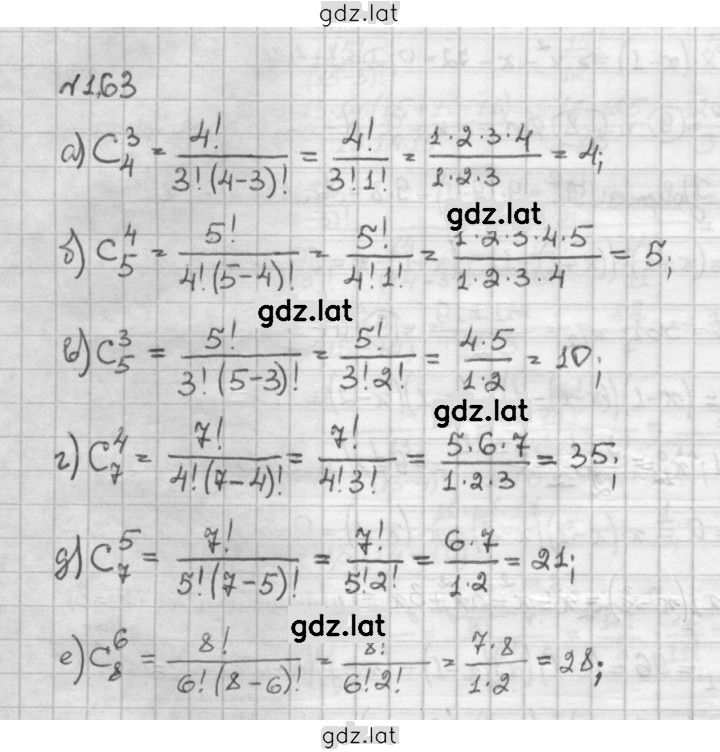 gdz.lat
№1.63
а) C₄³ = 4!/(3!(4-3)!) = 4!/(3!1!) = (1·2·3·4)/(1·2·3) = 4;
gdz.lat
б) C₅⁴ = 5!/(4!(5-4)!) = 5!/(4!1!) = (1·2·3·4·5)/(1·2·3·4) = 5;
gdz.lat
в) C₅³ = 5!/(3!(5-3)!) = 5!/(3!2!) = (4·5)/(1·2) = 10;
gdz.lat
г) C₇⁴ = 7!/(4!(7-4)!) = 7!/(4!3!) = (5·6·7)/(1·2·3) = 35;
д) C₇⁵ = 7!/(5!(7-5)!) = 7!/(5!2!) = (6·7)/(1·2) = 21;
gdz.lat
е) C₈⁶ = 8!/(6!(8-6)!) = 8!/(6!2!) = (7·8)/(1·2) = 28;
gdz.lat